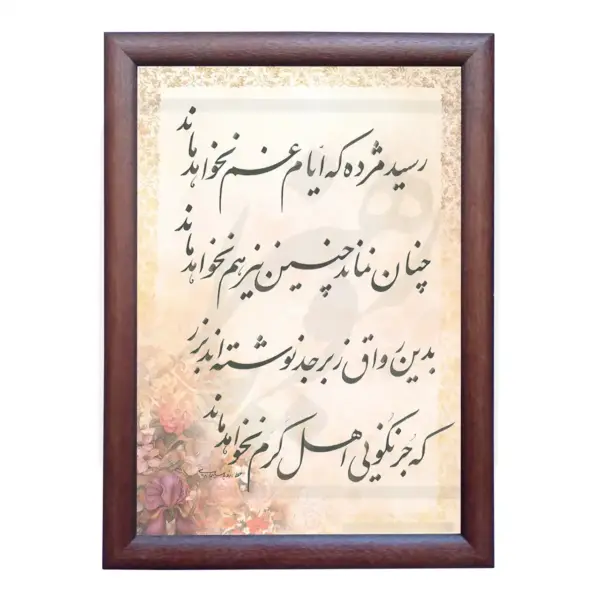 رسید مژده که ایام غم نخواهد ماند
چنان نماند چنین نیز هم نخواهد ماند
بدین رواق زبرجد نوشته اند بزر
که جز نکویی اهل کرم نخواهد ماند